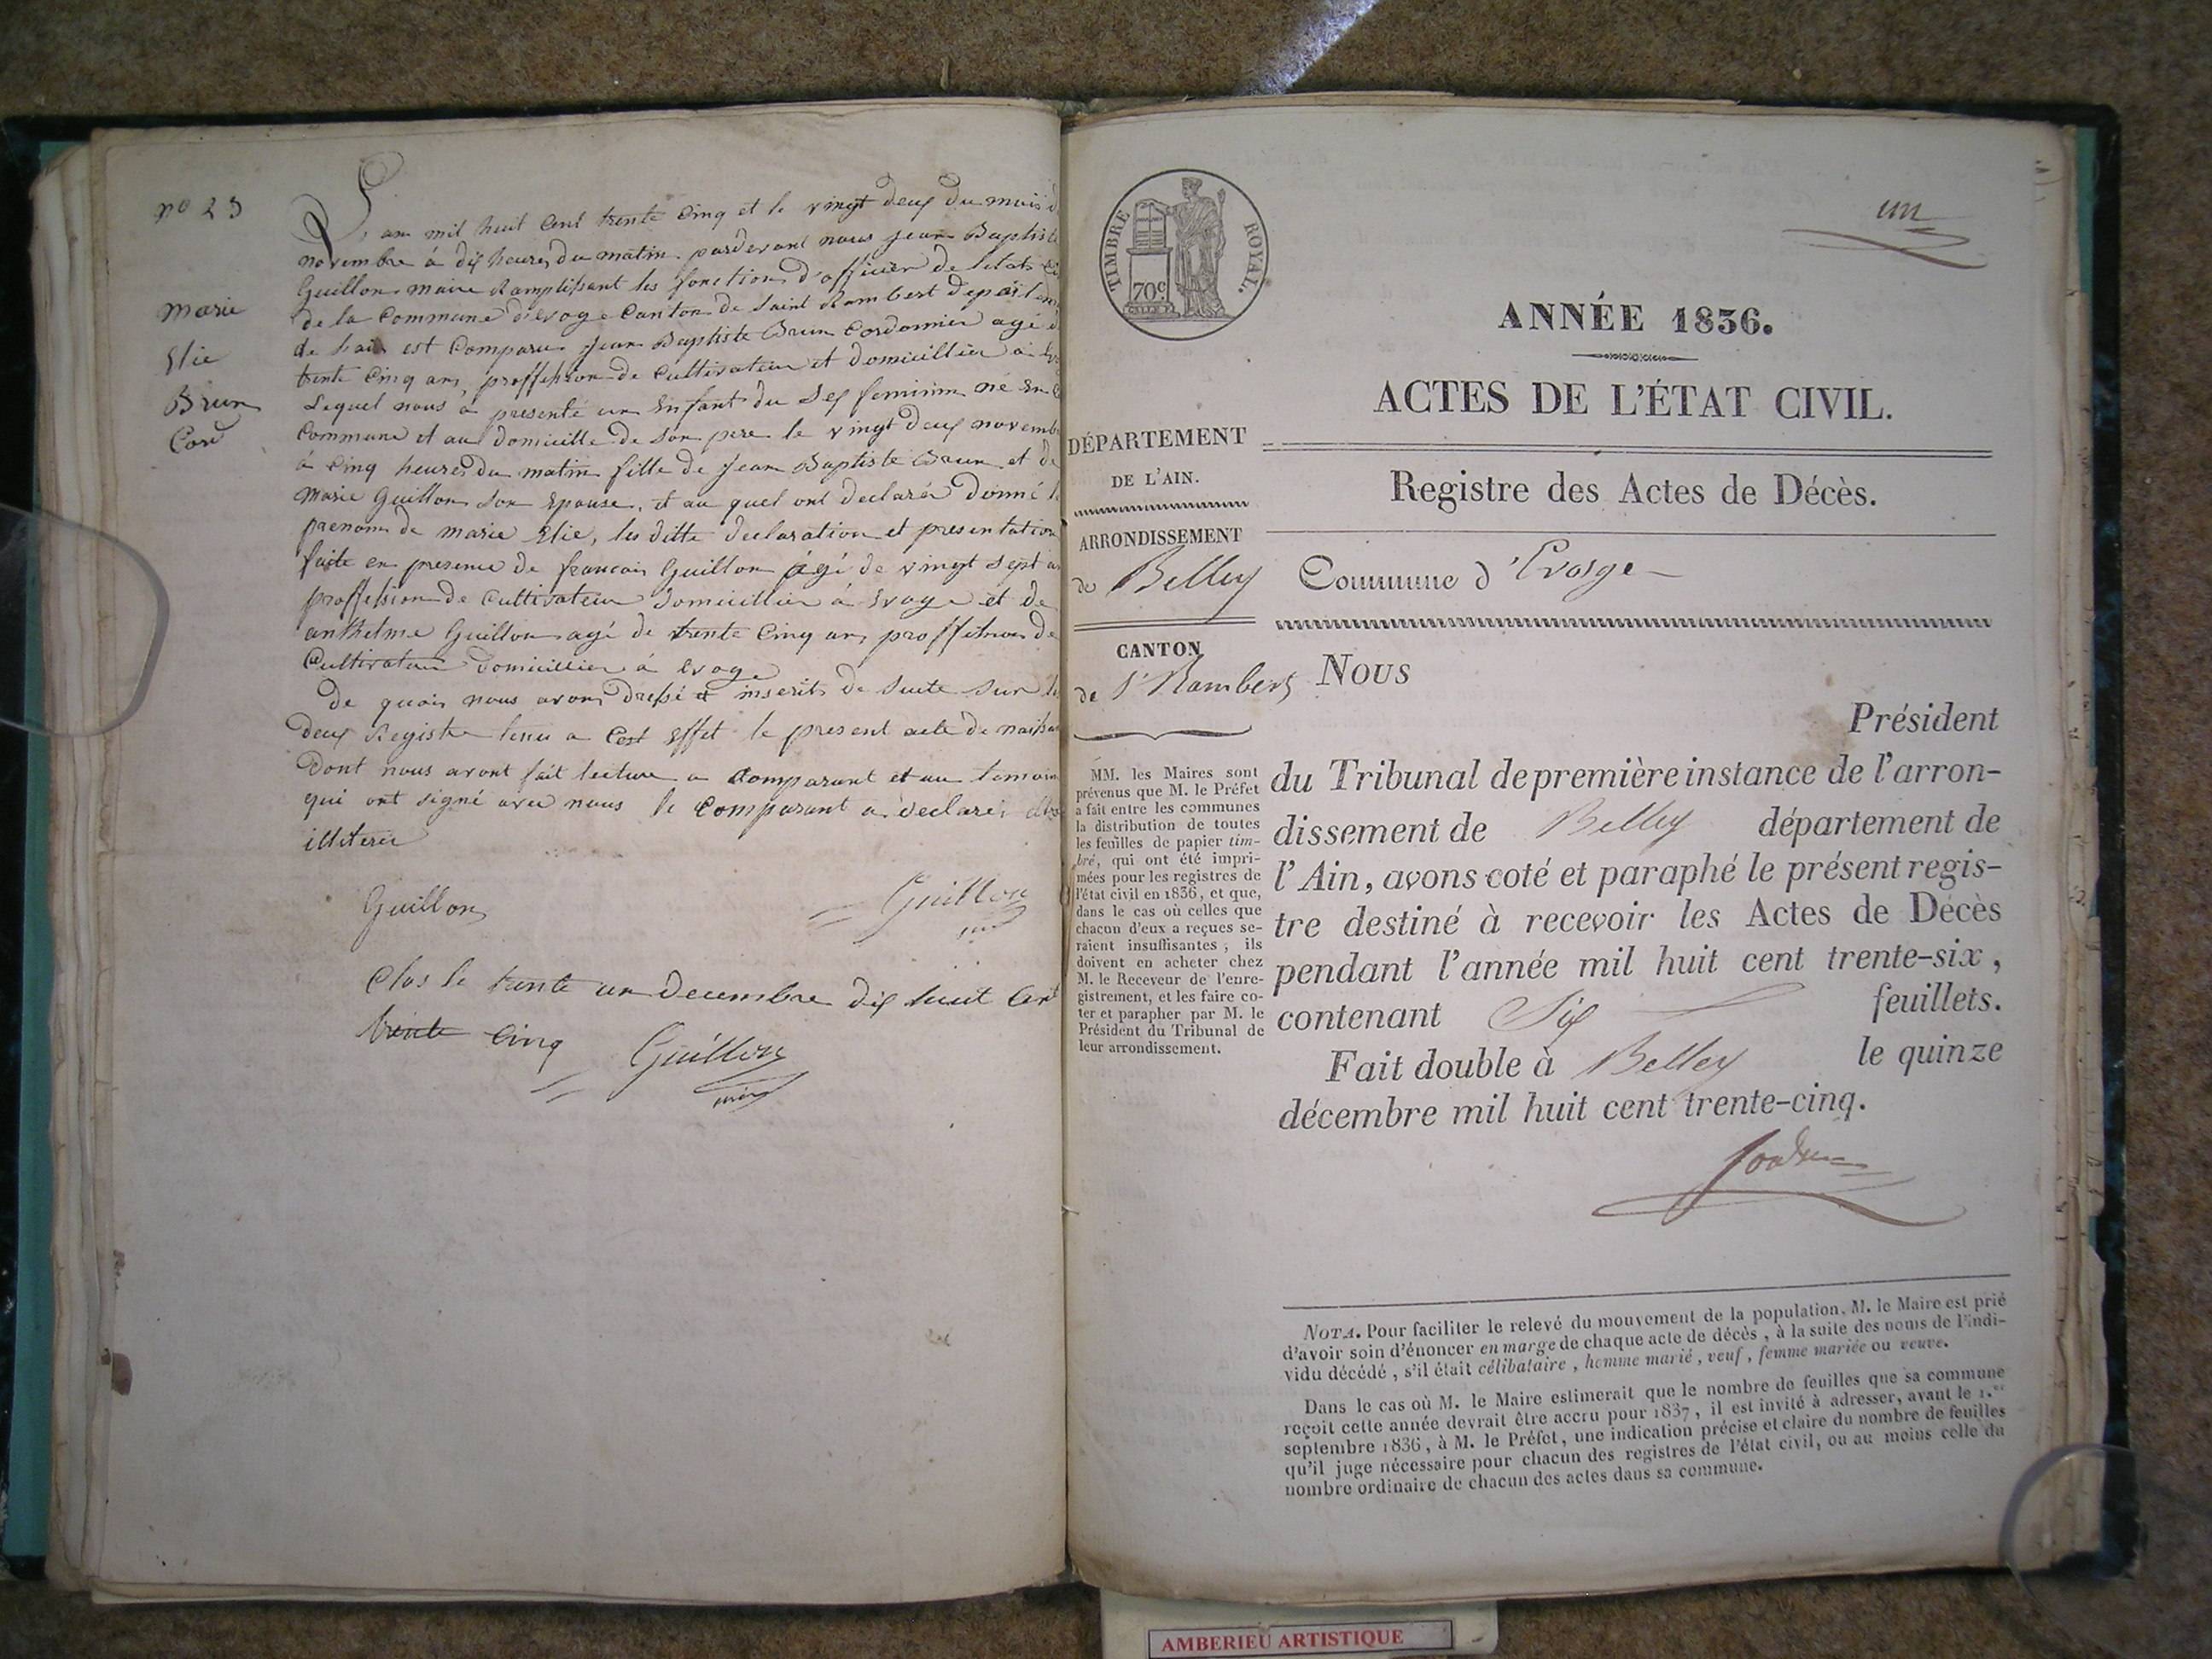 n° 23
marie
Elie
Brun
Cord
L'an mil huit Cent trente Cinq et le vingt deux du mois d
novembre à dix heures du matin pardevant nous Jean Baptiste
Guillon maire Ramplissant les fonction d'officier de l'etat Ci
de la Commune d'évoge Canton de Saint Rambert departem
de l'ain est Comparu Jean Baptiste Brun Cordonnier agé d
trente Cinq ans proffession de Cultivateur et domicillier a Ev
Lequel nous a presenté un Enfant du Sex feminin né En C
Commune et au domicille de Son pere le vingt deux novemb
à Cinq heures du matin fille de Jean Baptiste Brun et de
marie Guillon Son Epouse, et au quel ont declaré donné l
prenom de marie Elie, les ditte declaration et presentation
faite en presence de francois Guillon agé de vingt Sept a
proffession de Cultivateur domicillier à Evoge et de
anthelme Guillon agé de trente Cinq ans proffession de
Cultivateur domicillier à Evoge
de quois nous avons dressé et inscrits de Suite Sur le
deux Registre tenu a Cest Effet le present acte de naissan
Dont nous avont fait lecture a Comparant et au temoin
qui ont signé avec nous le Comparant a declarer être
illiterée
Guillon
Guillon
Clos le trente un decembre dix huit Cent
trente Cinq
Guillon
un
TIMBRE ROYAL.
70c
ANNÉE 1836.
ACTES DE L'ÉTAT CIVIL.
Registre des Actes de Décès.
DÉPARTEMENT
DE L'AIN.
ARRONDISSEMENT
de Belley
Commune d'Evosge
CANTON
de St Rambert
MM. les Maires sont
prévenus que M. le Préfet
a fait entre les communes
la distribution de toutes
les feuilles de papier tim-
bré, qui ont été impri-
mées pour les registres de
l'état civil en 1836, et que,
dans le cas où celles que
chacun d'eux a reçues se-
raient insuffisantes, ils
doivent en acheter chez
M. le Receveur de l'enre-
gistrement, et les faire co-
ter et parapher par M. le
Président du Tribunal de
leur arrondissement.
Nous
Président
du Tribunal de première instance de l'arron-
dissement de Belley département de
l'Ain, avons coté et paraphé le présent regis-
tre destiné à recevoir les Actes de Décès
pendant l'année mil huit cent trente-six,
contenant Six feuillets.
Fait double à Belley le quinze
décembre mil huit cent trente-cinq.
NOTA. Pour faciliter le relevé du mouvement de la population, M. le Maire est prié
d'avoir soin d'énoncer en marge de chaque acte de décès, à la suite des noms de l'indi-
vidu décédé, s'il était célibataire, homme marié, veuf, femme mariée ou veuve.
Dans le cas où M. le Maire estimerait que le nombre de feuilles que sa commune
reçoit cette année devrait être accru pour 1837, il est invité à adresser, avant le 1.er
septembre 1836, à M. le Préfet, une indication précise et claire du nombre de feuilles
qu'il juge nécessaire pour chacun des registres de l'état civil, ou au moins celle du
nombre ordinaire de chacun des actes dans sa commune.
AMBERIEU ARTISTIQUE